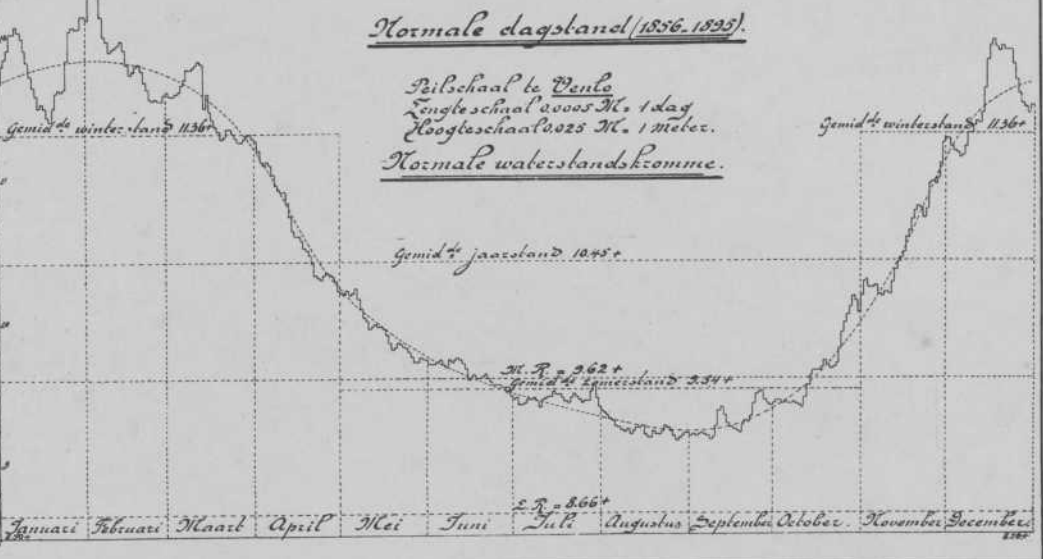 Normale dagstand (1856-1895).
Peilschaal te Venlo
Lengteschaal 0.0005 M = 1 dag
Hoogteschaal 0.025 M = 1 meter.
Gemidde winterstand 11.36+
Gemidde winterstand 11.36+
Normale waterstandskromme.
Gemidde jaarstand 10.45+
M.R. = 9.62+
Gemidde zomerstand 9.54+
L.R. = 8.66+
Januari Februari Maart April Mei Juni Juli Augustus September October. November December.